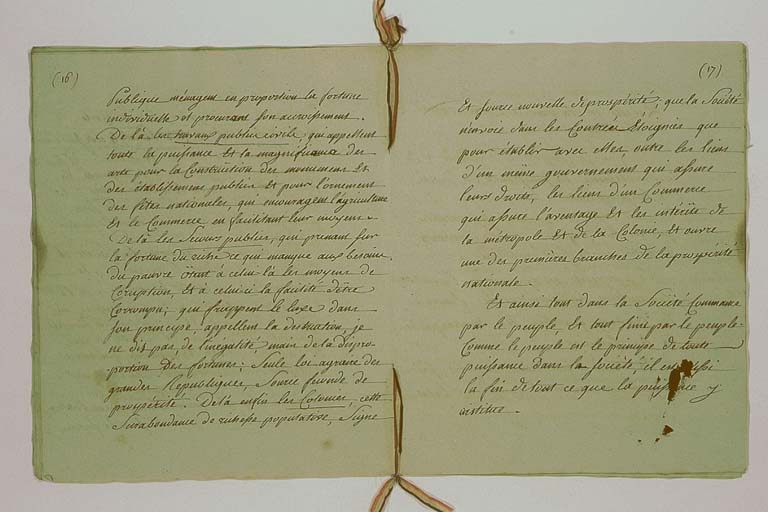 (16)
Publique ménagent en proportion la fortune
individuelle et procurent son accroissement.
De là les travaux publics civils qui appellent
toute la puissance Et la magnificence des
arts pour la Construction des monumens Et
des établissemens publics Et pour l'ornement
des fêtes nationales, qui encouragent l'agriculture
Et le Commerce en facilitant leur moyens.
De là les Secours publics, qui prenant sur
la fortune du riche ce qui manque aux besoins
du pauvre ôtent à celui là les moyens de
Coruption, Et à celui ci la facilité d'être
Corrompu; qui frappent le luxe dans
son principe, appellent la destruction, je
ne dis pas, de l'inégalité, mais de la dispro-
portion des fortunes: Seule loi agraire des
grandes Republiques, Source féconde de
prospérité! De là enfin les Colonies, cette
Surabondance de richesse populative, Signe
(17)
Et source nouvelle de prospérité, que la Société
n'envoie dans les Contrées Eloignées que
pour établir avec elles, outre les liens
d'un meme gouvernement qui assure
leurs droits, les liens d'un Commerce
qui assure l'aventage Et les intérêts de
la métropole Et de la Colonie, Et ouvre
une des premières branches de la prospérité
nationale.
Et ainsi tout dans la Société Commence
par le peuple, Et tout finit par le peuple.
Comme le peuple est le principe de toute
puissance dans la Société, il est aussi
la fin de tout ce que la puissance y
institue.